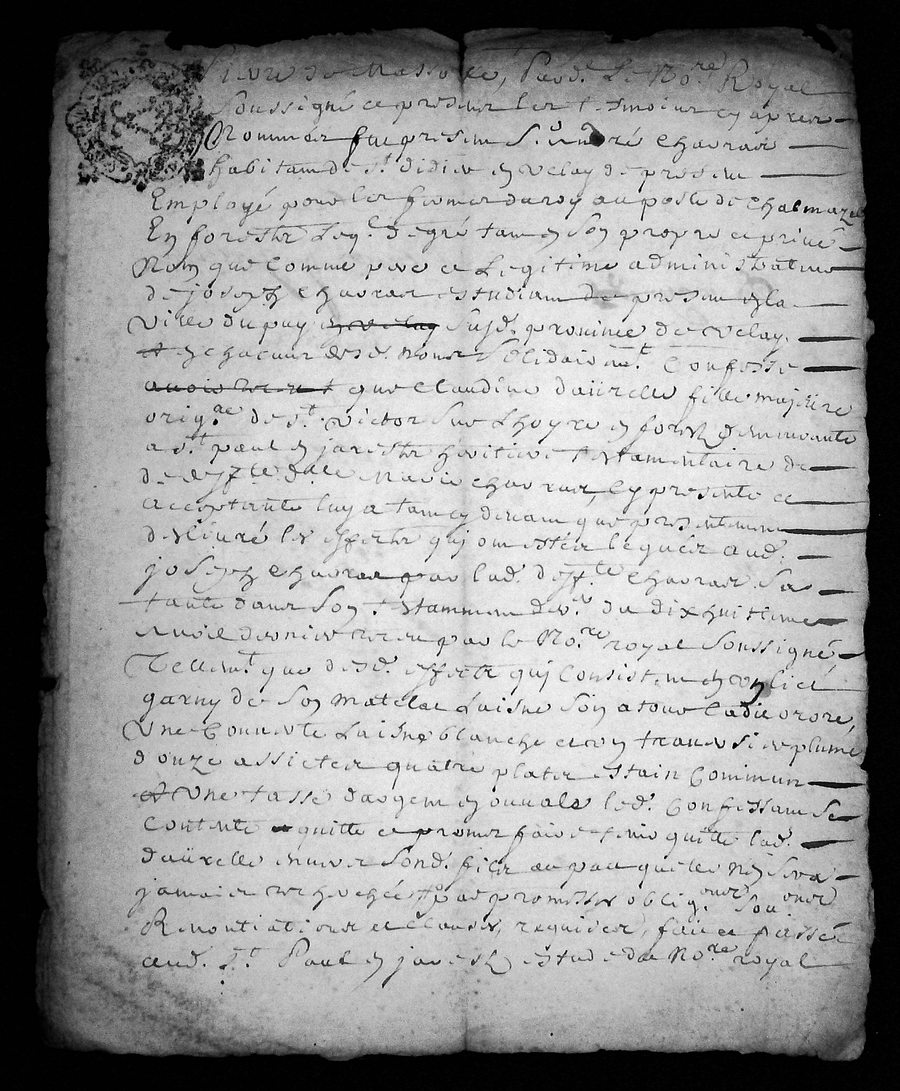 Soussigné et presens les tesmoins cy apres
Nommes fut present Sr André Chavras
habitant de St didier en velay de present
Employé pour les fermes du roy au poste de Chalmazel
En forestz Leql de gré tant en Son propre et privé
Nom que Comme pere et Legitime administrateur
de joseph Chavras estudiant de present en la
Ville du puy en velay Susd. province de velay
et en chacun desd. noms Solidairemt Confesse
avoir receu que Claudine daurelle fille majeure
origre de St victor Sur Lhoyre en forestz demeurante
a St paul en jarestz heritiere testamentaire de
deffte dlle Marie Chavras, Cy presente et
acceptante luy a tant cy devant que presentement
deslivré les effectz qui ont estés legués aud.
joseph Chavras par lad. deffte Chavras Sa
tante dans Son testamment du dixhuitieme
avril dernier receu par le Nore royal Soussigné
Tellemt que desd. effectz qui Consistent en un lict
garny de Son matelas Laisne Son atour Cadis
Une Couverte Laisne blanche et un traversier plume
douze assiettes quatre plats estain Commun
et Une tasse dargent en ouvale led. Confessant Se
Contente quitte et promet faire tenir quitte lad.
daurelle envers Sond. fils au par quelle nen Sera
jamais recherchée par promesses obligons
Renontiations et Clauses requises, fait et passé
aud. St Paul en jarestz estude du Nore royal